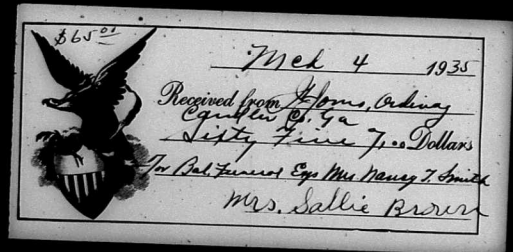 $65.00
Mch 4 1935
Received from Ordinary
Candler Co. Ga
Sixty Five Dollars
For Bal. Funeral Exps Mrs Nancy T. Smith
Mrs. Sallie Brown